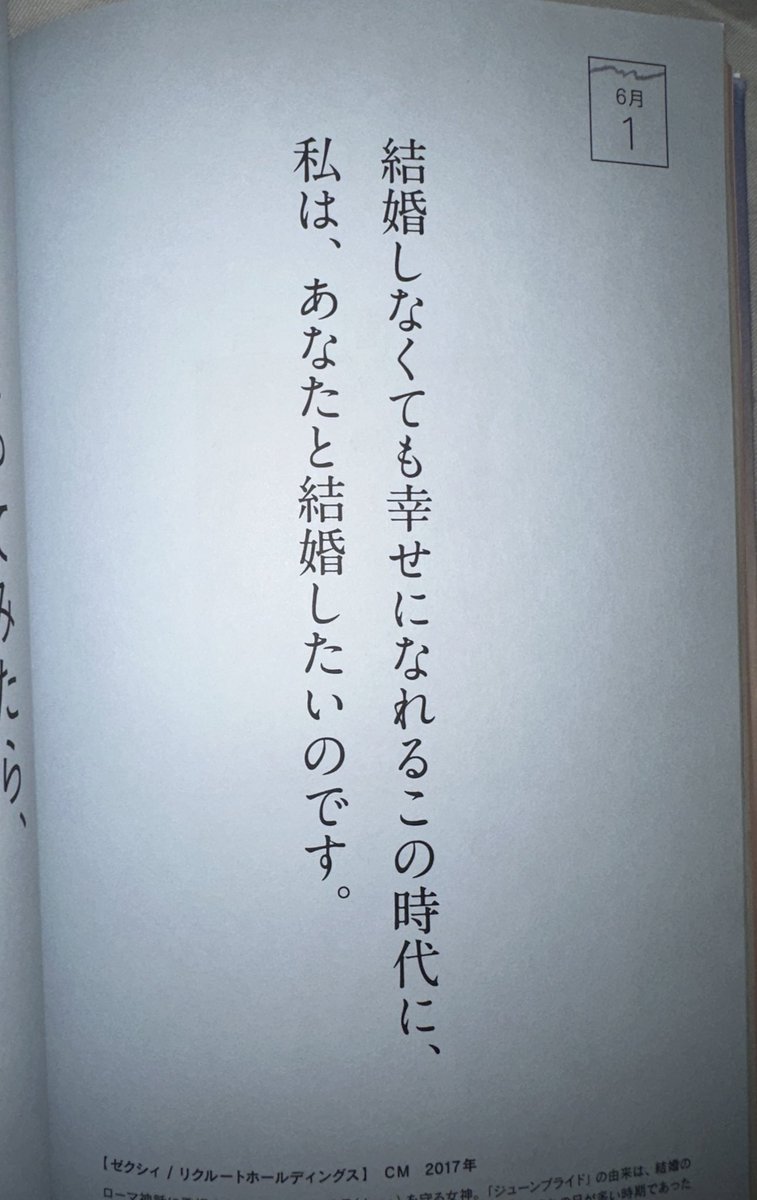 6月
1
結婚しなくても幸せになれるこの時代に、
私は、あなたと結婚したいのです。
てみたら、
【ゼクシィ / リクルートホールディングス】 CM 2017年
を守る女神。「ジューンブライド」の由来は、結婚の
ローマ神話に
日が多い時期であった